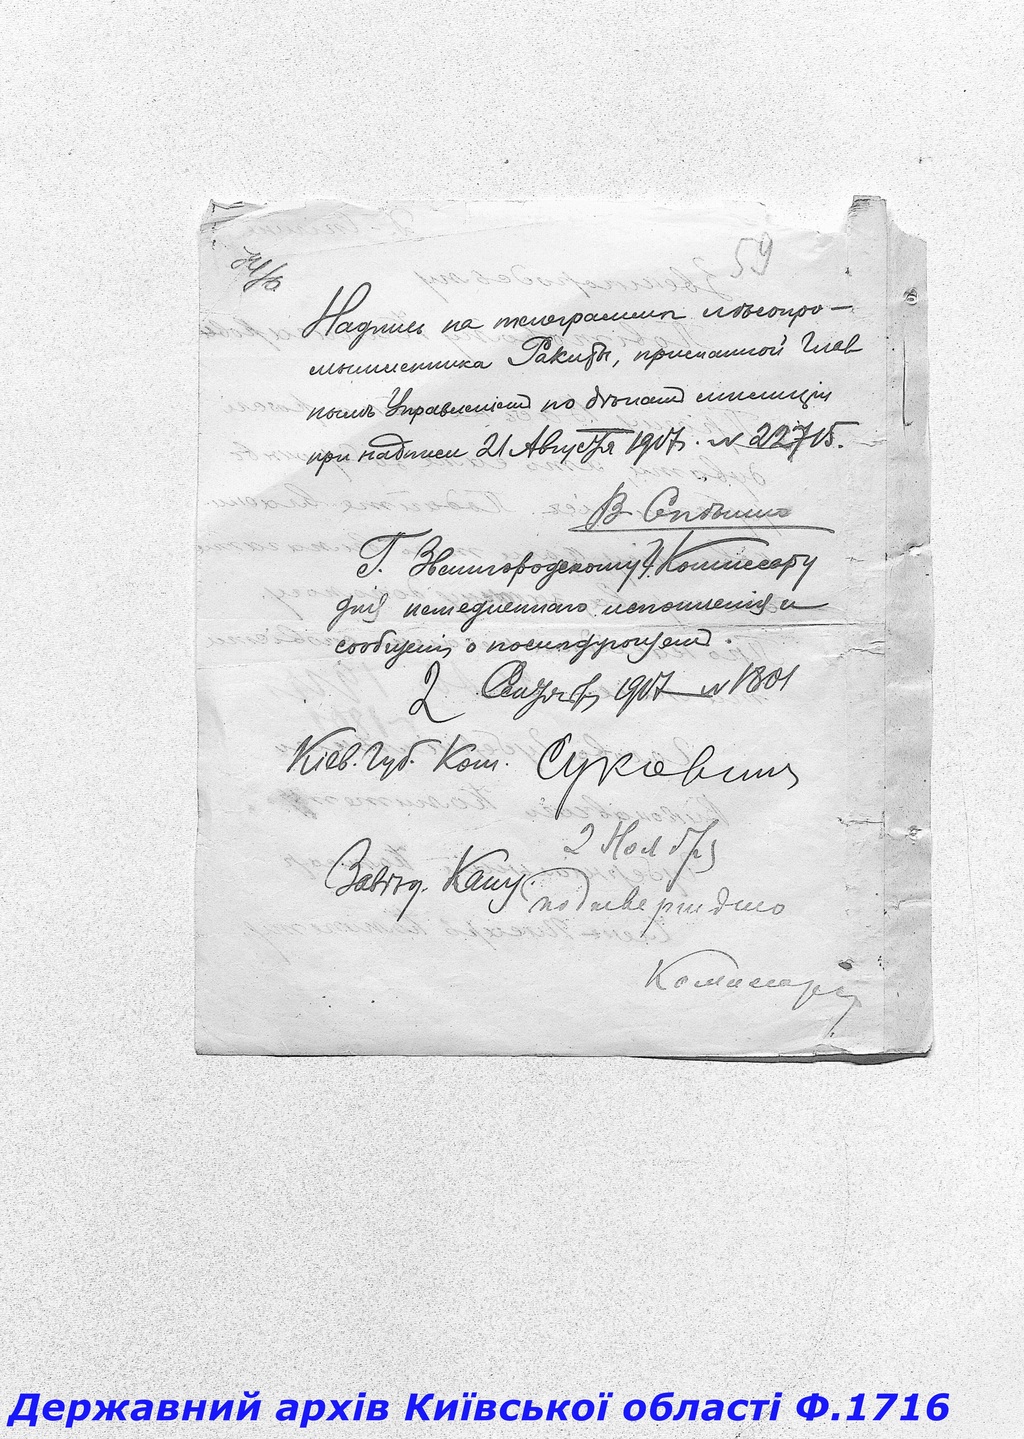 59
Надпись на телеграмме лесопро-
мышленника Ракиты, присланной Глав
нымъ Управленіем по дѣлам милиціи
при надписи 21 Августа 1917. № 22715.
В. Спѣшно
Г. Звенигородскому У. Коммиссару
для немедленнаго исполненія и
сообщенія о послѣдующем.
2 Сентября 1917 № 1801
Кіев. Губ. Ком. Суковкин
2 Ноября
Завѣд. Канц. подтверждено
Комиссаръ
Державний архів Київської області Ф.1716